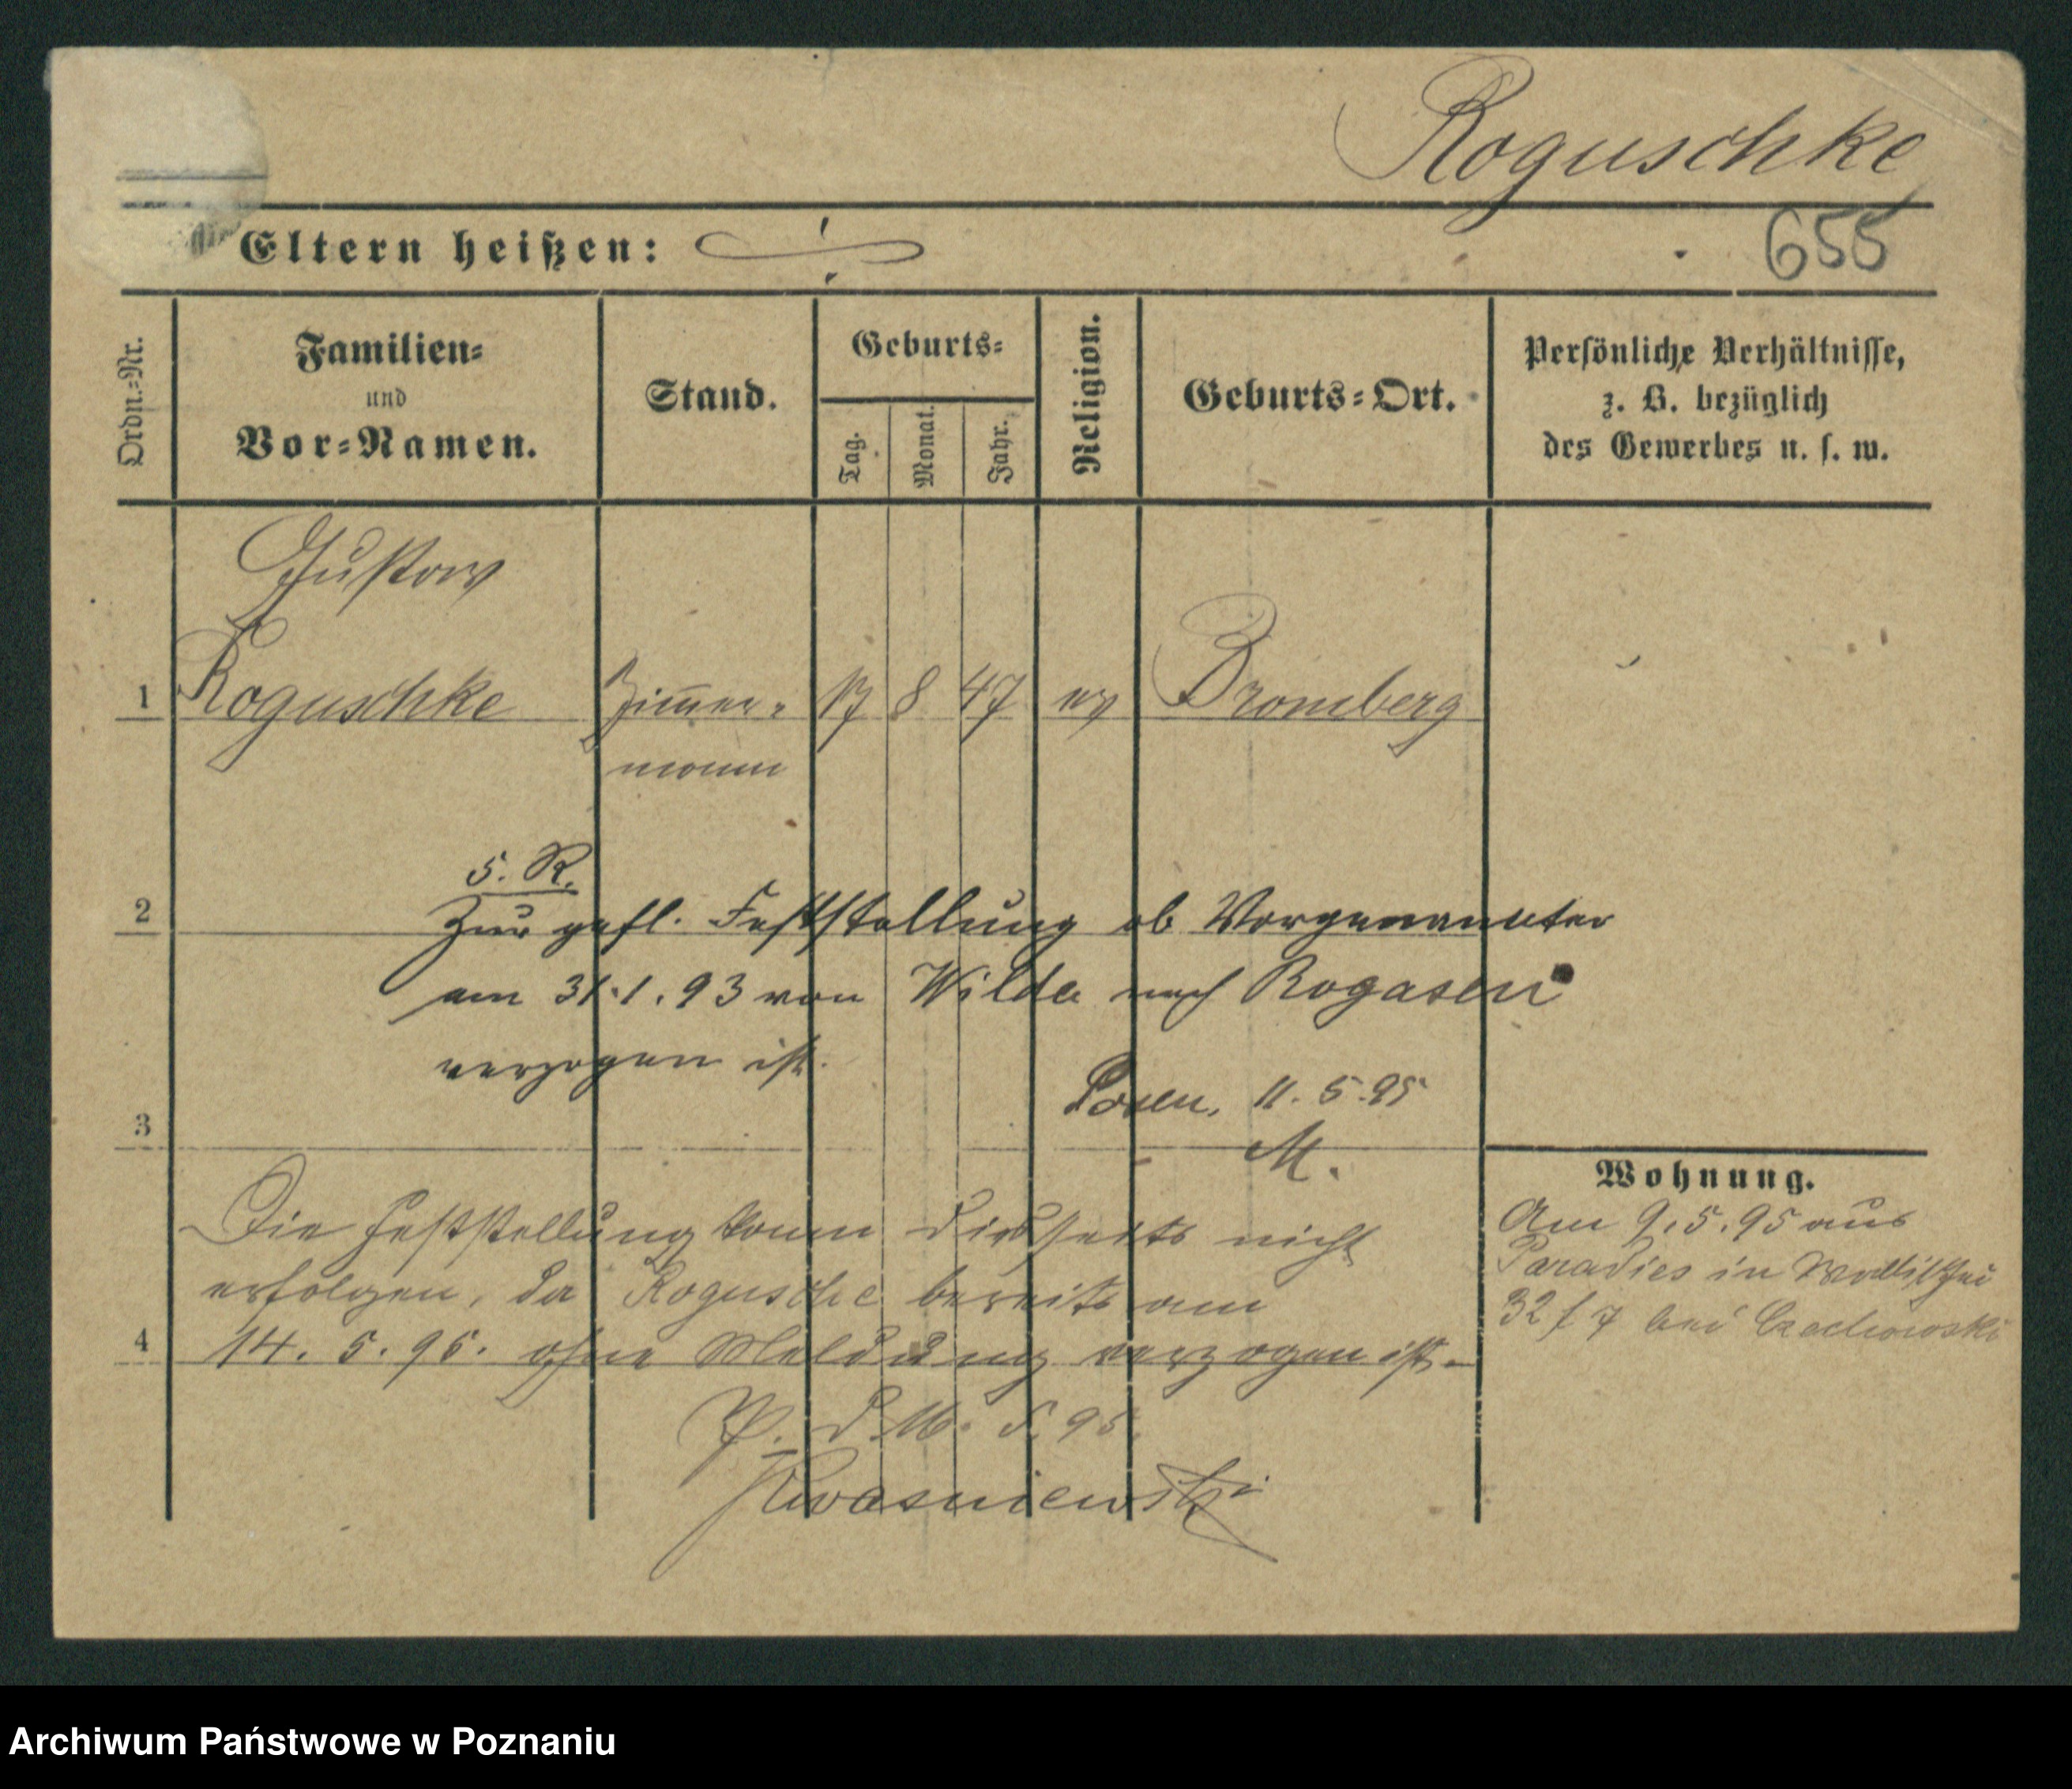 Roguschke
Eltern heißen:
655
Ordn.=Nr.
Familien=
und
Vor=Namen.
Stand.
Geburts=
Tag.
Monat.
Jahr.
Religion.
Geburts=Ort.
Persönliche Verhältnisse,
z. B. bezüglich
des Gewerbes u. s. w.
Gustav
1 Roguschke Zim̅er= 17 8 47 ev Bromberg
mann
5. R.
2 Zur gefl. Feststellung ob Vorgenannter
am 31.1.93 von Wilda nach Rogasen
verzogen ist.
Posen, 11.5.95
3
M.
Wohnung.
Am 9.5.95 aus
Paradies in
32/7 bei Czechowski
Die Feststellung kann diesseits nicht
erfolgen, da Rogusche bereits am
4 14. 5. 95. ohne Meldung verzogen ist.
P. d. 16. 5. 95.
Kwasniewski
Archiwum Państwowe w Poznaniu